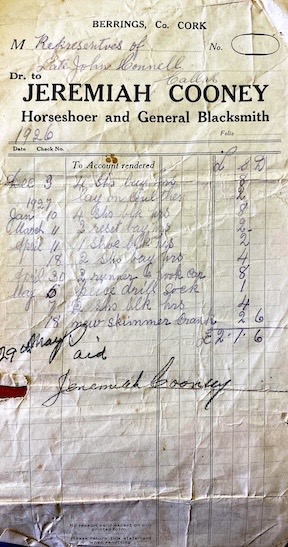 BERRINGS, Co. CORK
M Representves of No.
Late John Connell
Dr. to
JEREMIAH COONEY
Horseshoer and General Blacksmith
1926 Folio
Date Check No.
To Account rendered £ S D
Dec 3 4 shs 8
1927 lay on 2
Jan 10 4 shs blk hrs 8
March 11 2 reset bay hrs 2
April 11 1 shoe blk hrs 2
18 2 shs bay hrs 4
April 30 2 runner 8
May 5 piece drill sock 1
2 shs blk hrs 4
18 new skimmer 2 6
£ 2 " 1 " 6
29th May
Paid
Jeremiah Cooney